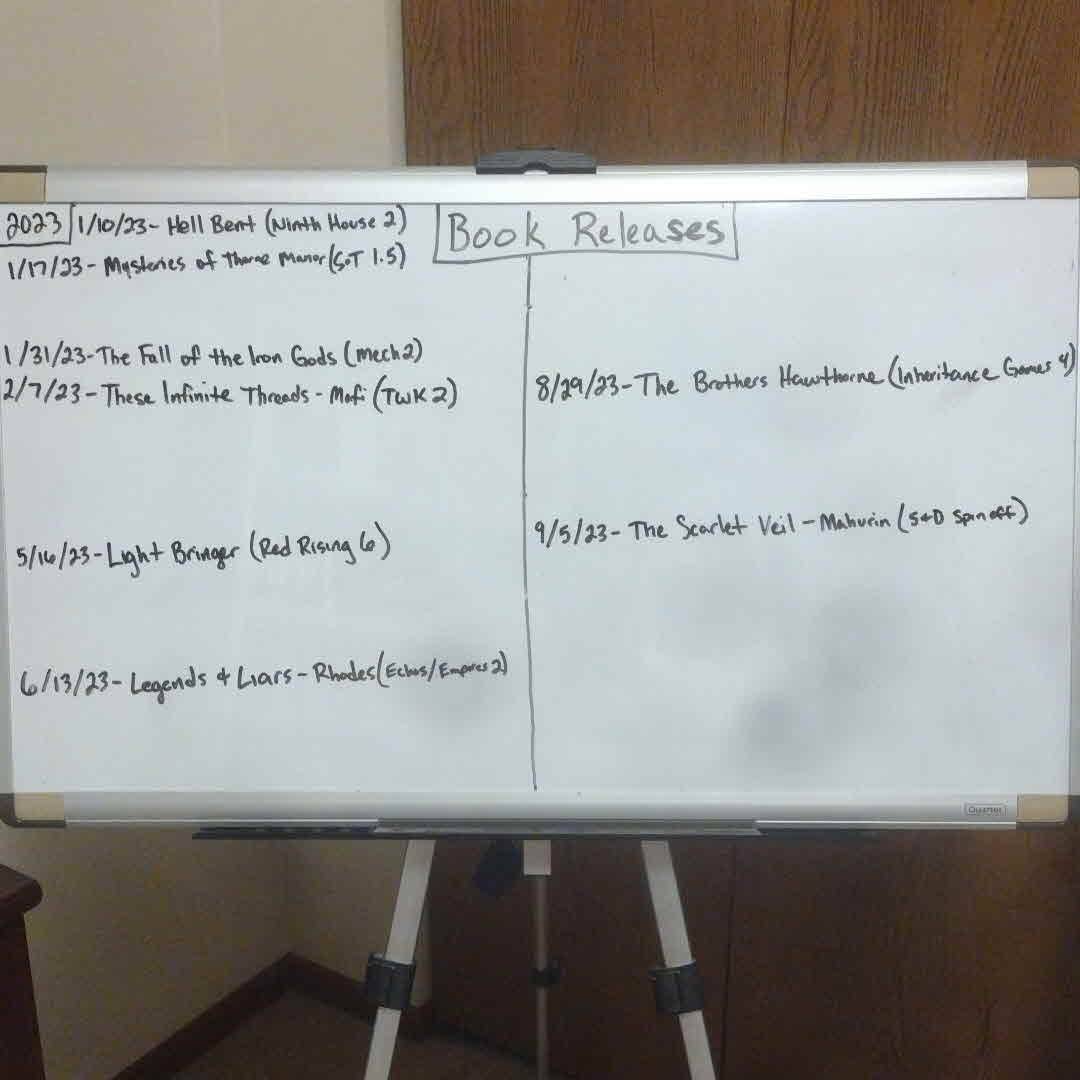 Book Releases
2023
1/10/23- Hell Bent (Ninth House 2)
1/17/23- Mysteries of Thorne Manor (SoT 1.5)
1/31/23-The Fall of the Iron Gods (Mech 2)
2/7/23- These Infinite Threads - Mafi (TWK 2)
5/16/23-Light Bringer (Red Rising 6)
6/13/23- Legends & Liars - Rhodes (Echos/Empires 2)
8/29/23-The Brothers Hawthorne (Inheritance Games 4)
9/5/23- The Scarlet Veil - Mahurin (S&D spin off)
Quartet